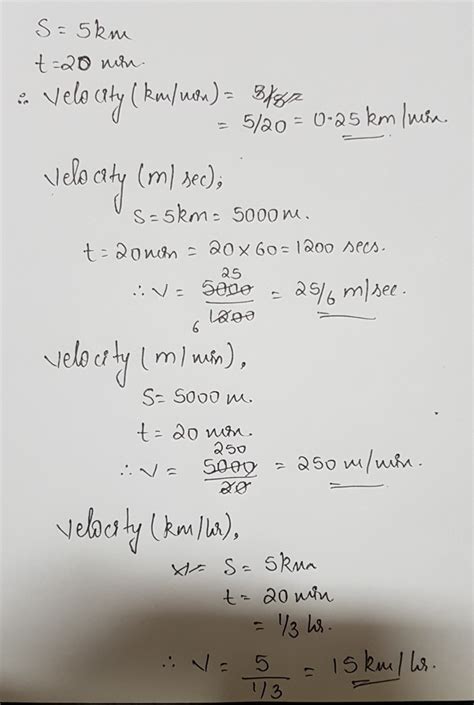 S = 5km
t = 20 min.
∴ Velocity (km/min) =
= 5/20 = 0.25 km/min.
Velocity (m/sec),
S = 5km = 5000 m.
t = 20 min = 20 × 60 = 1200 secs.
25
∴ V = 5000 = 25/6 m/sec.
6 1200
Velocity (m/min),
S = 5000 m.
t = 20 min.
250
∴ V = 5000 = 250 m/min.
20
Velocity (km/hr),
S = 5km
t = 20 min
= 1/3 hr.
∴ V = 5 = 15 km/hr.
1/3